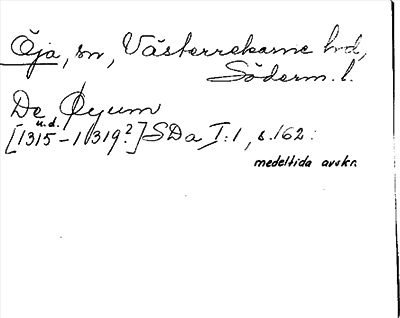 Öja, sn, Västerrekarne hd,
Söderm. l.
De Øyum
u.d.
[1315-1319?] SDa I:1, s.162:
medeltida avskr.